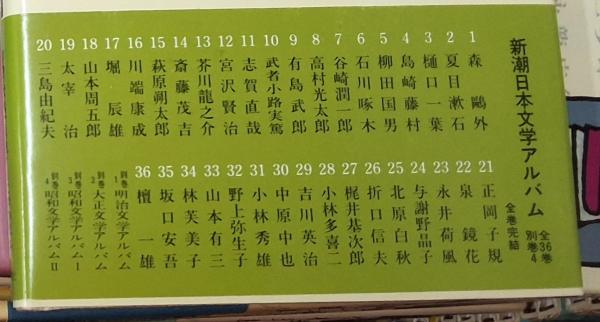 新潮日本文学アルバム
全36巻
別巻4
全巻完結
1 森鷗外
2 夏目漱石
3 樋口一葉
4 島崎藤村
5 柳田国男
6 石川啄木
7 谷崎潤一郎
8 高村光太郎
9 有島武郎
10 武者小路実篤
11 志賀直哉
12 宮沢賢治
13 芥川龍之介
14 斎藤茂吉
15 萩原朔太郎
16 川端康成
17 堀辰雄
18 山本周五郎
19 太宰治
20 三島由紀夫
21 正岡子規
22 泉鏡花
23 永井荷風
24 与謝野晶子
25 北原白秋
26 折口信夫
27 梶井基次郎
28 小林多喜二
29 吉川英治
30 中原中也
31 小林秀雄
32 野上弥生子
33 山本有三
34 林芙美子
35 坂口安吾
36 檀一雄
別巻1 明治文学アルバム
別巻2 大正文学アルバム
別巻3 昭和文学アルバムI
別巻4 昭和文学アルバムII